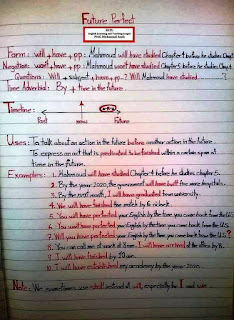 Future Perfect
Form: will + have + pp: Mahmoud will have studied Chapter 4 before he studies Chapt
Negation: won't + have + pp: Mahmoud won't have studied Chapter 5 before he studies Chapt
Questions: Will + subject + have + pp..? Will Mahmoud have studied
Time Adverbial: By + time in the future
Timeline:
Past now Future
Uses: To talk about an action in the future before another action in the future.
To express an act that is predicted to be finished within a certain span of
time in the future.
Examples: 1. Mahmoud will have studied Chapter 4 before he studies chapter 5.
2. By the year 2020, the government will have built five more hospitals.
3. By the next month, I will have graduated from university.
4. We will have finished the match by 6 o'clock.
5. You will have perfected your English by the time you come back from the U.S.
6. You won't have perfected your English by the time you come back from the U.S.
7. Will you have perfected your English by the time you come back from the U.S.?
8. You can call me at work at 8 am. I will have arrived at the office by 8.
9. I will have finished by 10 am.
10. I will have established my academy by the year 2020.
Note: We sometimes use shall instead of will, especially for I and we.